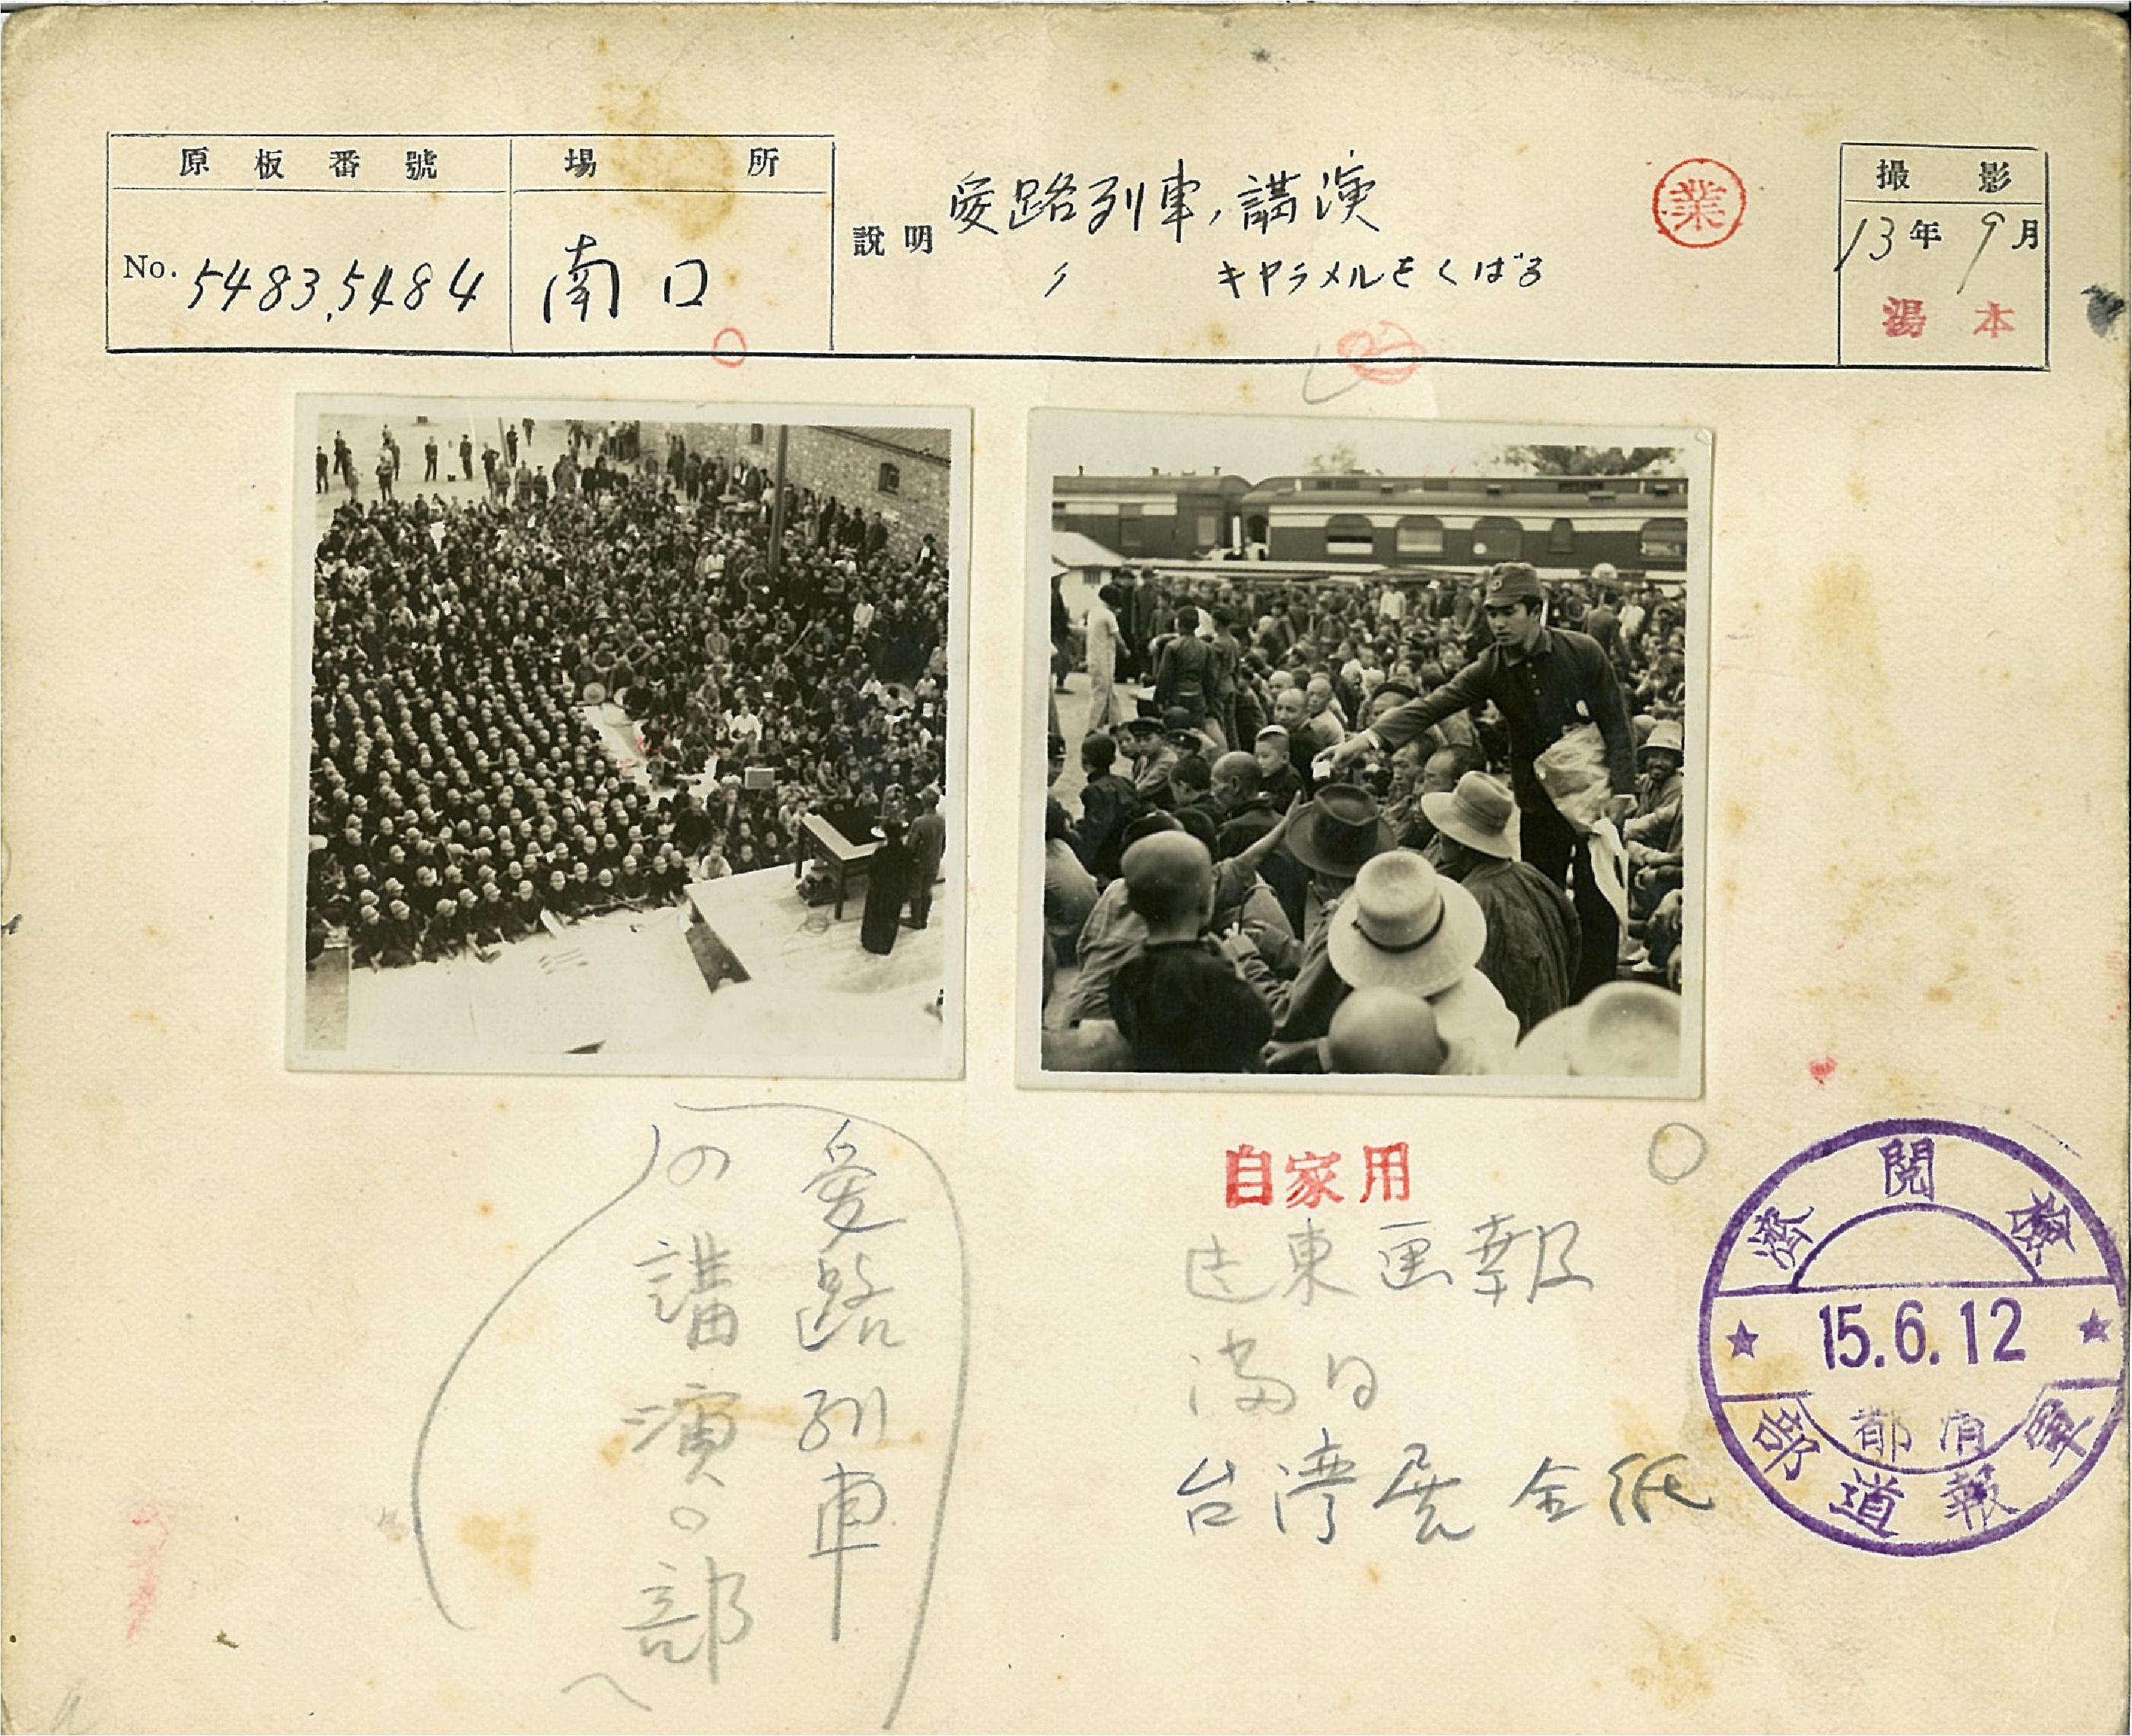 原板番號
No. 5483, 5484
場所
南口
說明
愛路列車,講演
〃 キヤラメルをくばる
業
撮影
13年9月
湯本
愛路列車
の講演の部
へ
自家用
東画報
満日
台湾展 全紙
検閲濟
15.6.12
軍報道部